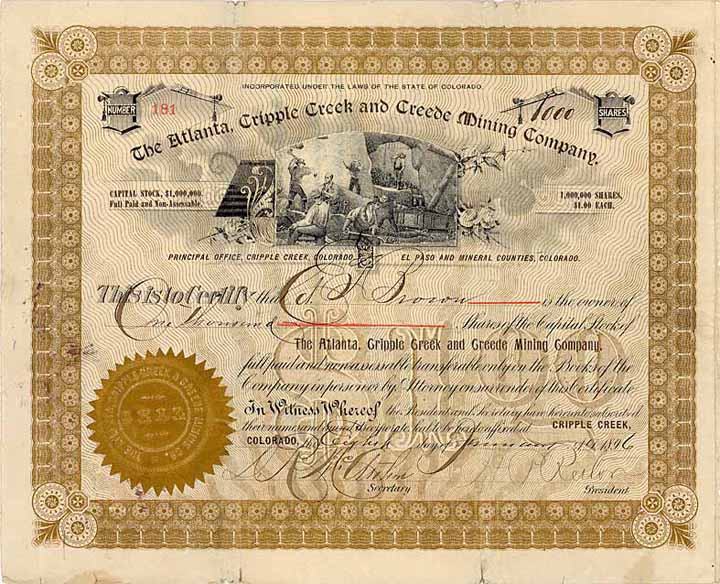 INCORPORATED UNDER THE LAWS OF THE STATE OF COLORADO.
NUMBER 181
1000 SHARES
The Atlanta, Cripple Creek and Creede Mining Company.
CAPITAL STOCK, $1,000,000.
Full Paid and Non-Assessable.
1,000,000 SHARES,
$1.00 EACH.
PRINCIPAL OFFICE, CRIPPLE CREEK, COLORADO. EL PASO AND MINERAL COUNTIES, COLORADO.
This is to Certify that Brown is the owner of
One thousand Shares of the Capital Stock of
The Atlanta, Cripple Creek and Creede Mining Company,
full paid and non assessable transferable only on the Books of the
Company in person or by Attorney on surrender of this Certificate.
In Witness Whereof the President and Secretary have hereunto subscribed
their names and caused corporate seal to be hereto affixed at CRIPPLE CREEK,
COLORADO, this Eighth day of January 1896
Secretary President